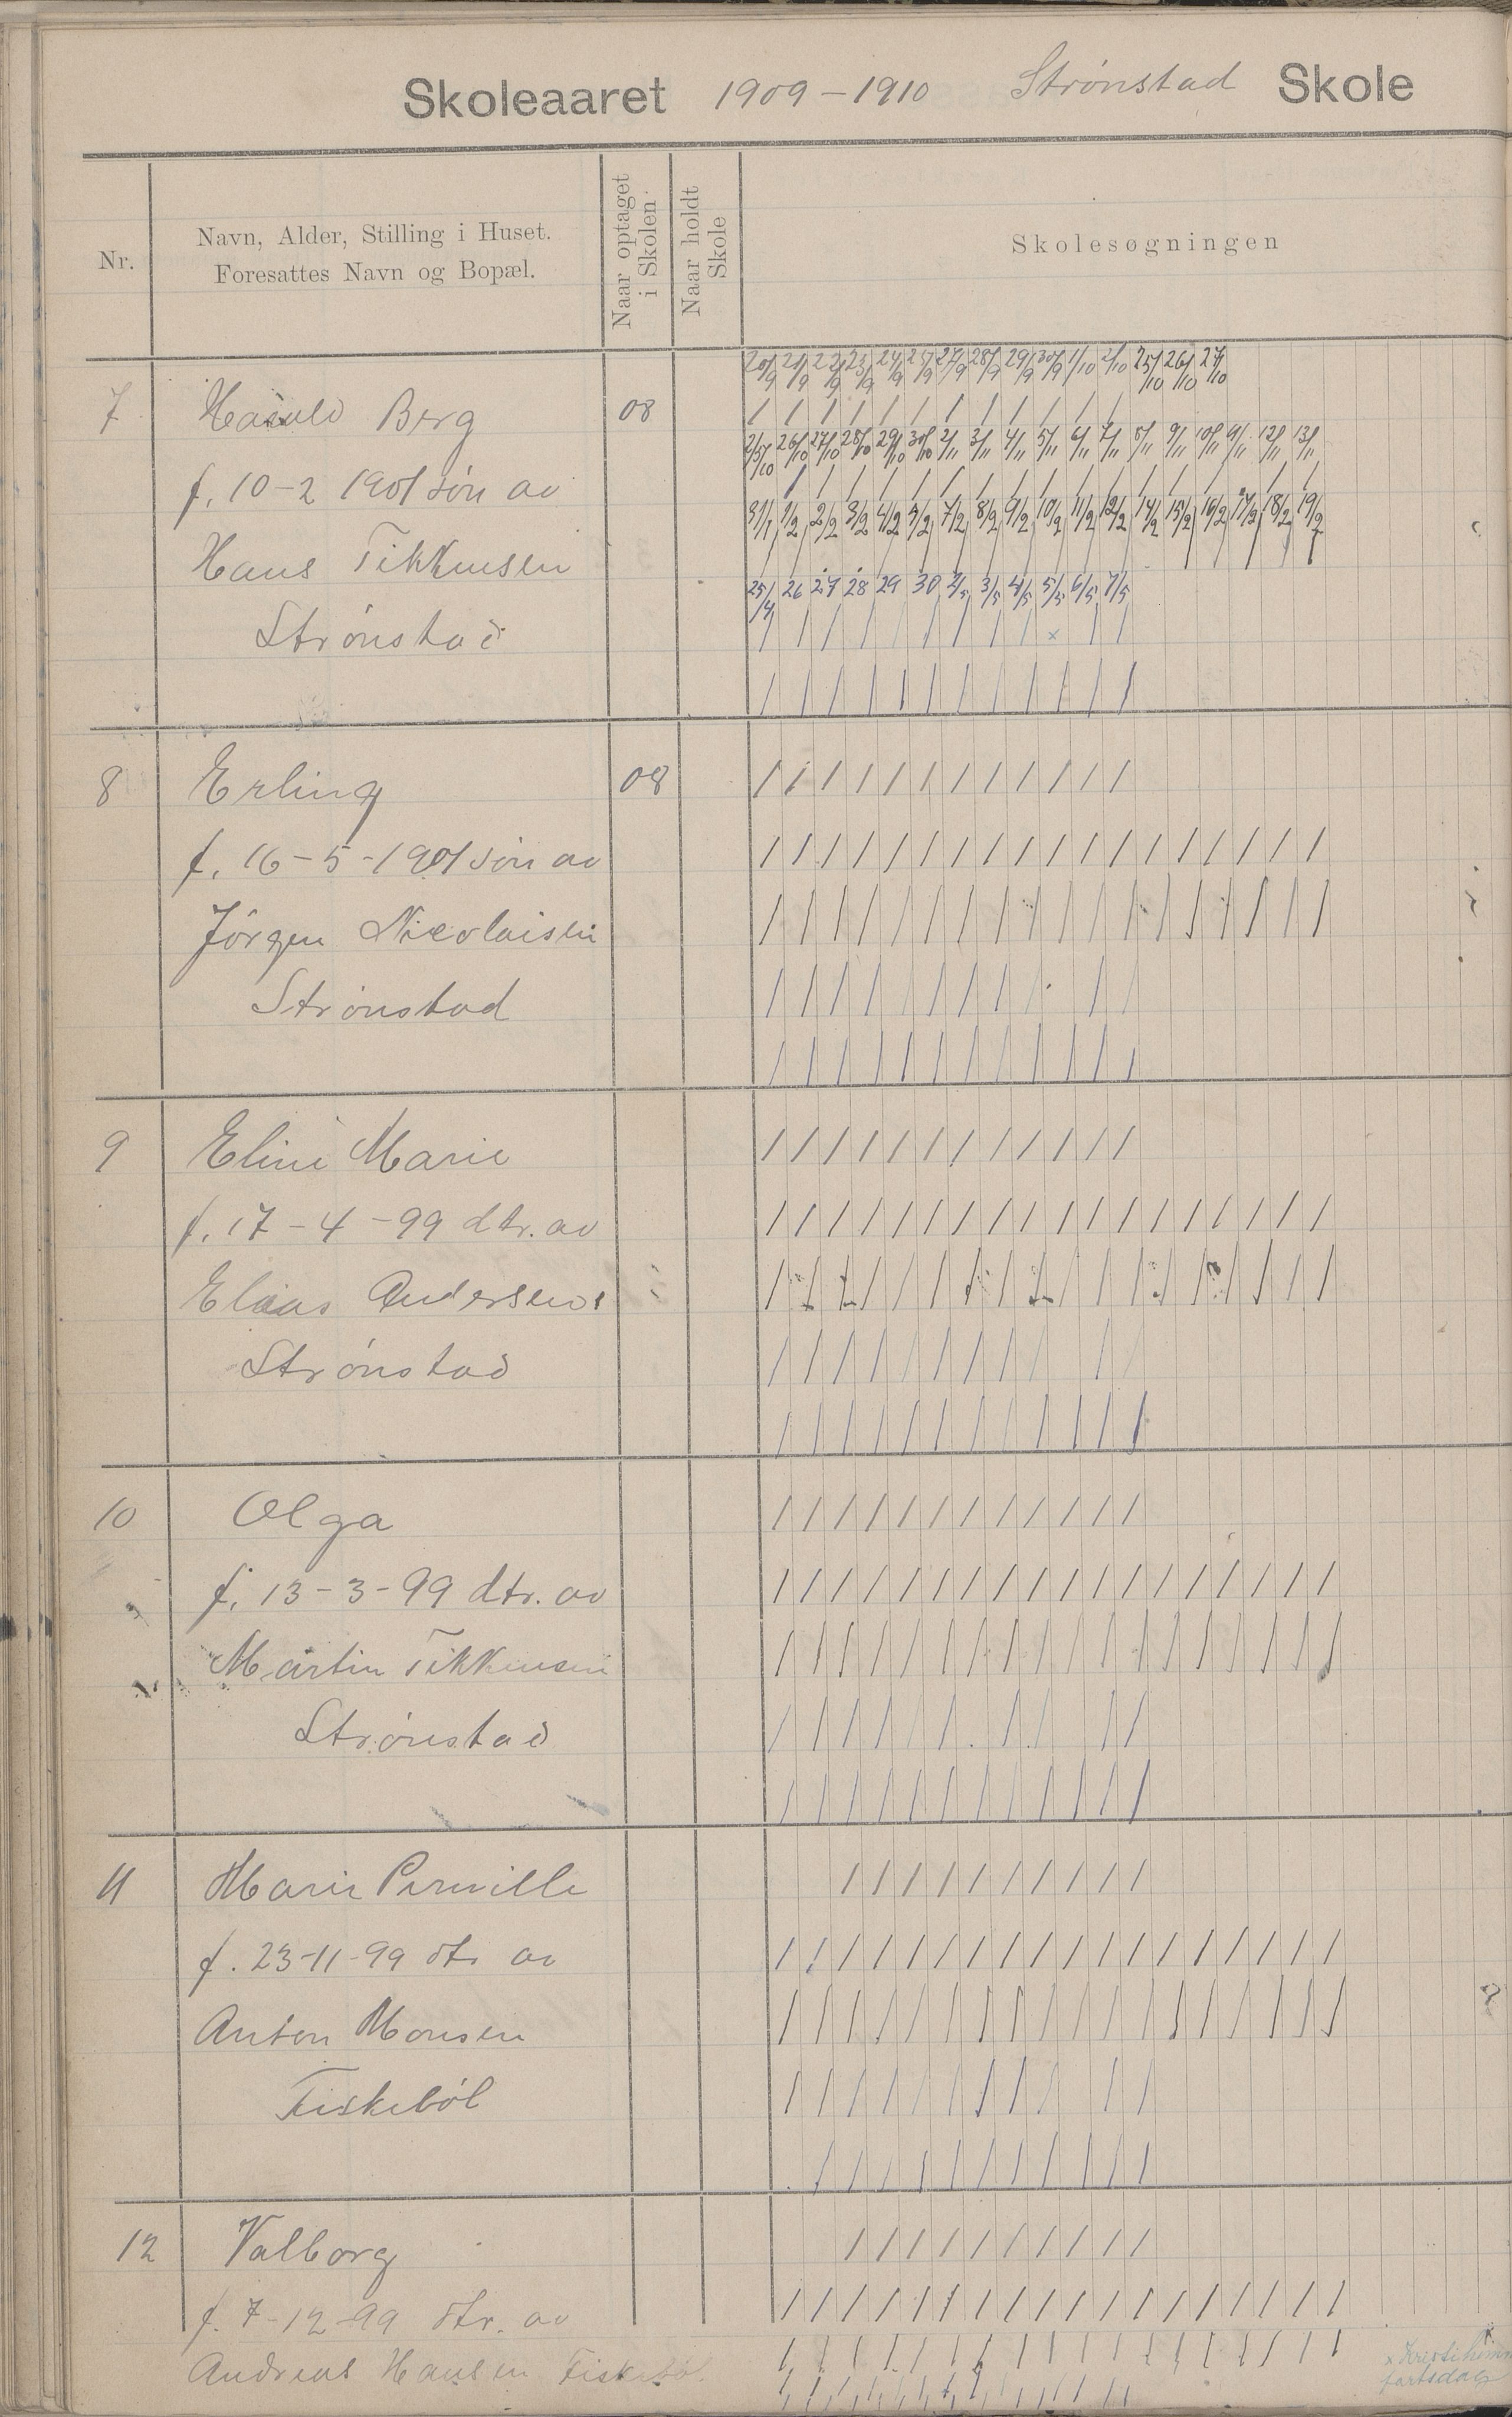 Skoleaaret 1909-1910 Strønstad Skole
Nr.
Navn, Alder, Stilling i Huset.
Foresattes Navn og Bopæl.
Naar optaget
i Skolen
Naar holdt
Skole
Skolesøgningen
20/9 21/9 22/9 23/9 24/9 25/9 27/9 28/9 29/9 30/9 1/10 2/10 25/10 26/10 27/10
7 Harald Berg 08
25/10 26/10 27/10 28/10 29/10 30/10 2/11 3/11 4/11 5/11 6/11 7/11 8/11 9/11 10/11 9/11 12/11 13/11
f. 10-2 1901 søn av
31/1 1/2 2/2 3/2 4/2 5/2 7/2 8/2 9/2 10/2 11/2 12/2 14/2 15/2 16/2 17/2 18/2 19/2
Hans Tikkensen
25/4 26 27 28 29 30 2/5 3/5 4/5 5/5 6/5 7/5
Strønstad
x
8 Erling 08
f. 16-5-1901 søn av
Jörgen Nicolaisen
Strønstad
9 Eline Marie
f. 17-4-99 dtr. av
Elias Andersen
Strønstad
10 Olga
f. 13-3-99 dtr. av
Martin Tikkensen
Strønstad
11 Marie Pernille
f. 23-11-99 dtr av
Anton Monsen
Fiskebøl
12 Valborg
f. 7-12-99 dtr. av
Andreas Hansen Fiskebøl
x Kristihimm
fartsdag